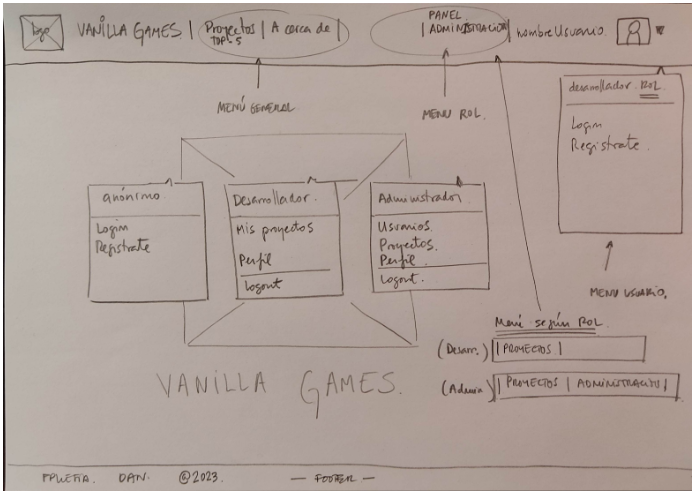 logo
VANILLA GAMES | Proyectos | A cerca de |
TOP 5
PANEL
| ADMINISTRACIÓN | nombre Usuario
MENÚ GENERAL
MENU ROL.
desarrollador. ROL
Login
Registrate.
MENU USUARIO.
anónimo
Login
Registrate
Desarrollador.
Mis proyectos
Perfil
Logout
Administrador
Usuarios.
Proyectos.
Perfil.
Logout.
Menú según ROL.
(Desarr.) | PROYECTOS |
(Admin) | PROYECTOS | ADMINISTRACIÓN |
VANILLA GAMES.
©2023. — FOOTER —